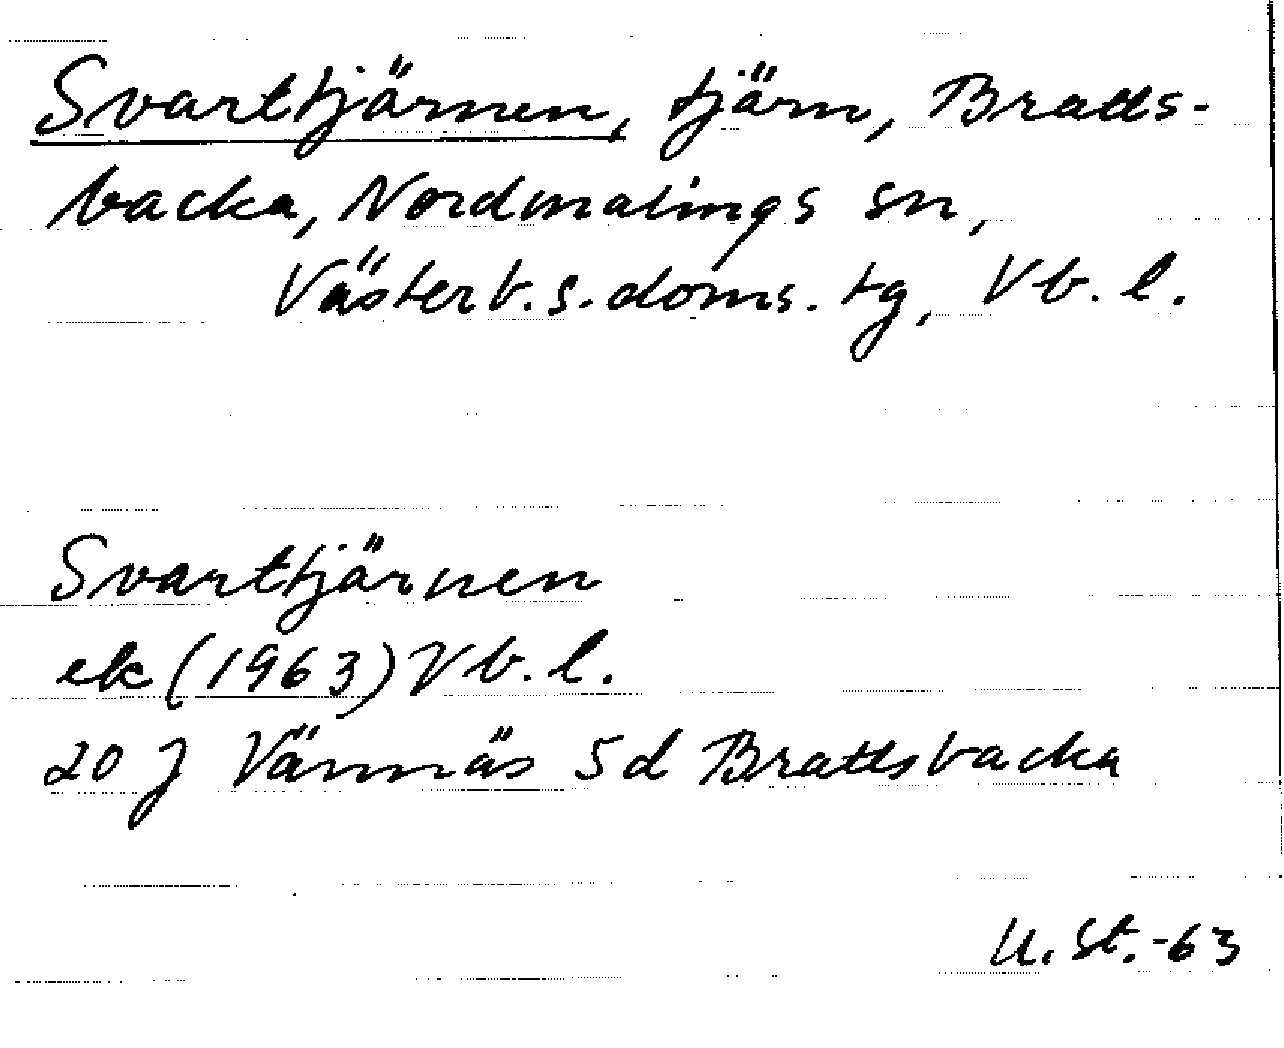 Svarttjärnen, tjärn, Bratts-
backa, Nordmalings sn,
Västerb. s. doms. tg, Vb. l.
Svarttjärnen
ek (1963) Vb. l.
20 J Vännäs 5d Brattsbacka
U. St. -63